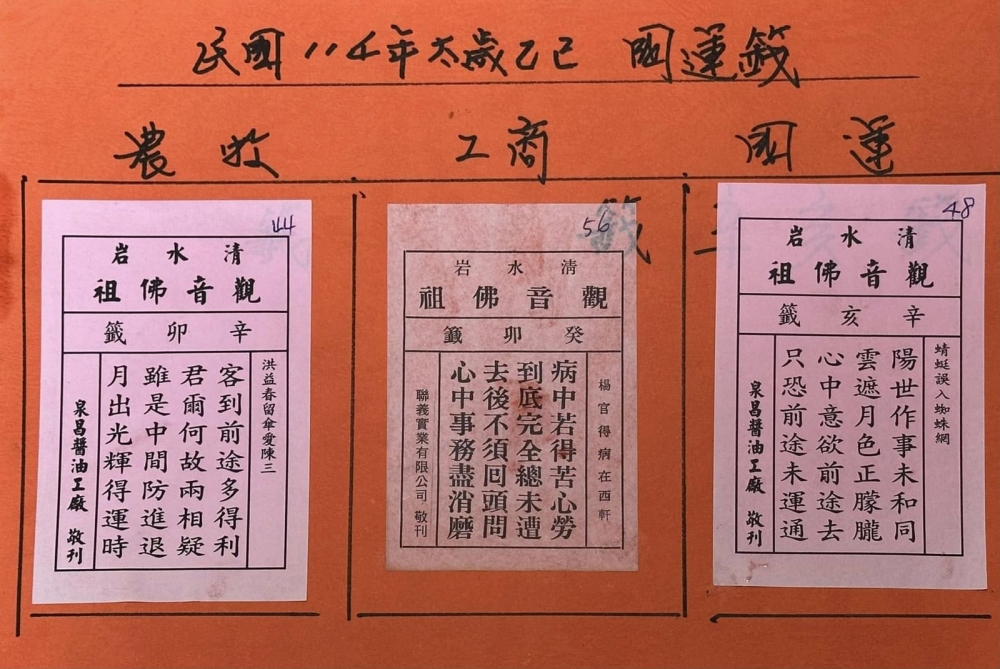 民國114年太歲乙巳 國運籤
國運
工商
農牧
48
清水岩
觀音佛祖
辛亥籤
蜻蜓誤入蜘蛛網
陽世作事未和同
雲遮月色正朦朧
心中意欲前途去
只恐前途未運通
泉昌醬油工廠 敬刊
56
清水岩
觀音佛祖
癸卯籤
楊官得病在西軒
病中若得苦心勞
到底完全總未遭
去後不須回頭問
心中事務盡消磨
聯義實業有限公司 敬刊
44
清水岩
觀音佛祖
辛卯籤
洪益春留傘愛陳三
客到前途多得利
君爾何故兩相疑
雖是中間防進退
月出光輝得運時
泉昌醬油工廠 敬刊
籤